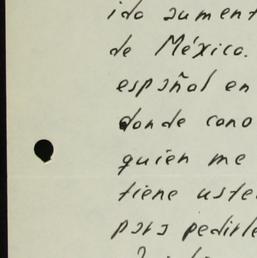 ido aument
de México.
español en
donde cono
quien me
tiene uste
para pedirle